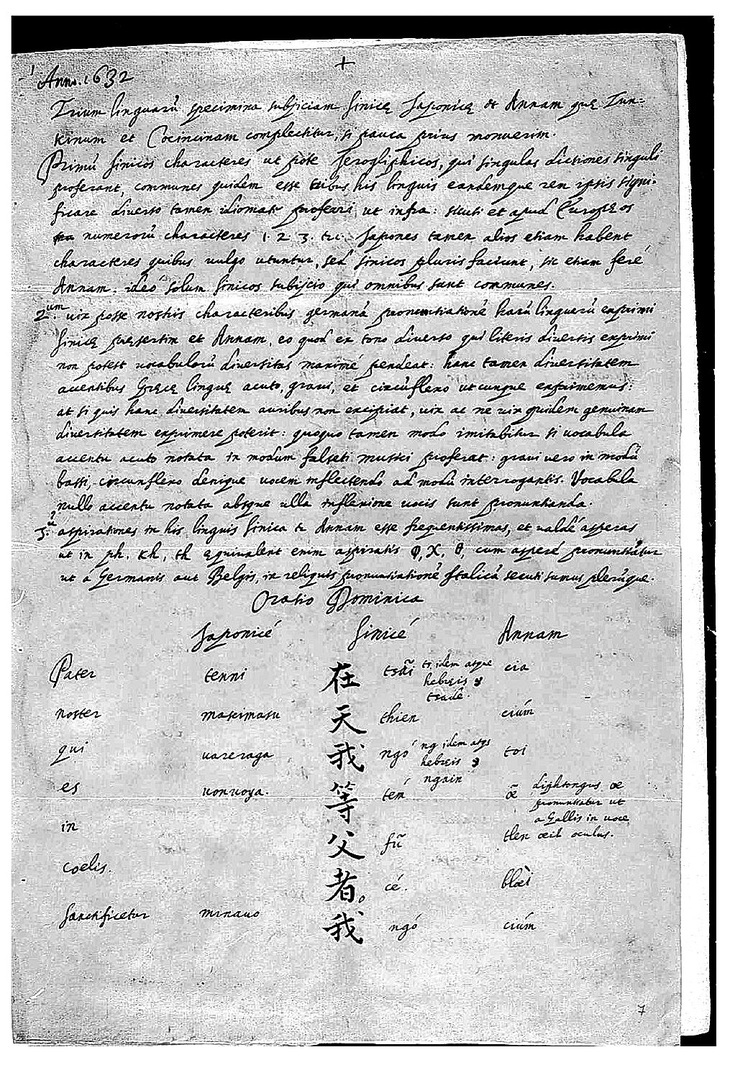 Anno. 1632
Trium linguarũ specimina subjiciam Sinicę Japonicę et Annam quę Tun-
kinum et Cocincinam complectitur, si pauca prius monuerim.
Primũ sinicos characteres ut pote jerogliphicos, qui singulas dictiones singuli
proferant, communes quidem esse tribus his linguis eandemque rem ipsis signi-
ficare diverso tamen idiomate proferri ut infra. sicuti et apud Europęos
numerorũ characteres 1. 2. 3. Japones tamen alios etiam habent
characteres quibus vulgo utuntur, sed sinicos pluris faciunt, sic etiam ferè
Annam. ideo solum sinicos subijcio qui omnibus sunt communes.
2.um vix posse nostris characteribus germanã pronuntiationẽ harũ linguarũ exprimi
sinicę pręsertim et Annam, eo quod ex tono diverso qui literis diversis exprimi
non potest vocabulorũ diversitas maximè pendeat: hanc tamen diversitatem
accentibus Gręcę linguę acuto, gravi, et circũflexo utcunque exprimemus:
at si quis hanc diversitatem auribus non excipiat, vix ac ne vix quidem genuinam
diversitatem exprimere poterit: quoquo tamen modo imitabitur si vocabula
accentu acuto notata in modum falseti musici proferat: gravi vero in modũ
bassi, circunflexo denique vocem inflectendo ad modũ interrogantis. Vocabula
nullo accentu notata absque ulla inflexione vocis sunt pronuntianda.
3. aspirationes in his linguis sinica et Annam esse frequentissimas, et valdè asperas
ut in ph, kh, th ęquivalent enim aspiratis φ, χ, θ, cum asperè pronuntiãtur
ut a Germanis aut Belgis, in reliquis pronuntiationẽ Italicã secuti sumus plerũque.
Oratio Dominica
Japonicé Sinicé Annam
Pater tenni 在 tsãi ts, idem atque hebreis tsade. cia
noster masimasu 天 thien ciúm
qui vareraga 我 ngó ng, idem atqe hebreis ngain toi
es vonvoya. 等 tén œ̃ diphtongus œ pronuntiatur ut a Gallis in voce œil oculus.
in 父 fũ tlen
coelis. 者。 cé. blœ̀i
sanctificetur minavo 我 ngó ciúm
7